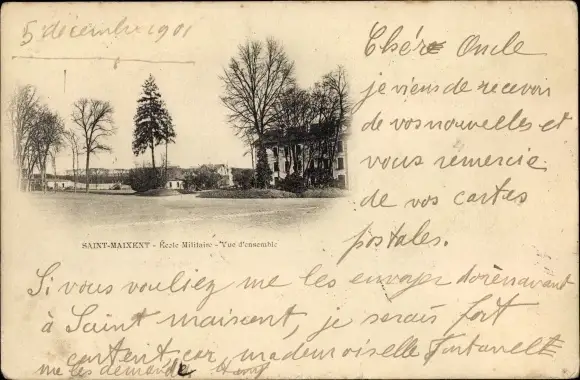 5 décembre 1901
Chère Oncle
je viens de recevoir
de vos nouvelles et
vous remercie
de vos cartes
postales.
SAINT-MAIXENT - École Militaire - Vue d'ensemble
Si vous vouliez me les envoyer dorénavant
à Saint maixent, je serais fort
content car mademoiselle Fontanelle
me les demande